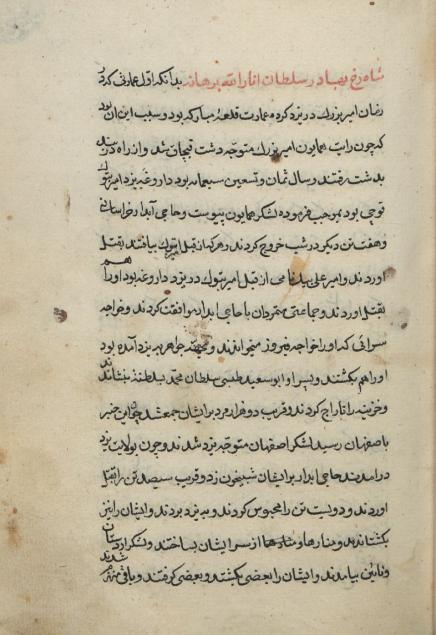 شاه رخ بهادر سلطان انار الله برهانه بدانکه اول عمارتی که در
زمان امیر بزرک در یزد کرده عمارت قلعهٔ مبارکه بود و سبب این آن بود
که چون رایت همایون امیر بزرک متوجه دشت قبچاق شد و از راه دربند
بدشت رفتند و سال ثمان و تسعین سبعمایه بود داروغهٔ یزد امیر تموک
قوچی بود بموجب فرموده لشکر همایون پیوست و حاجی آبدار خراسانی
و هفت تن دیکر در شب خروج کردند و هر که از قبل تموک یافتند بقتل
اوردند و امیر علی بیک نامی از قبل امیر تموک در یزد داروغه بود او را هم
بقتل اوردند و جماعتی متمردان با حاجی ابدار موافقت کردند و خواجه
سرائی که او را خواجه فیروز میخواندند و بجهة جواهر به یزد آمده بود
او را هم بکشتند و پسر او ابو سعید طبسی سلطان محمد بسلطنة بنشاندند
و خزینه را تاراج کردند و قریب دو هزار مرد بر ایشان جمع شد چون این خبر
باصفهان رسید لشکر اصفهان متوجه یزد شدند و چون بولایت یزد
در امدند حاجی ابدار بر ایشان شبیخون زد و قریب سیصد تن را بقتل
اوردند و دویست تن را محبوس کردند و به یزد بردند و ایشان را نیز
بکشتند و منارها از سر ایشان بساختند و لشکر اردستان
و نائین بیامدند و ایشان را بعضی بکشتند و بعضی کرفتند و باقی منهزم شدند